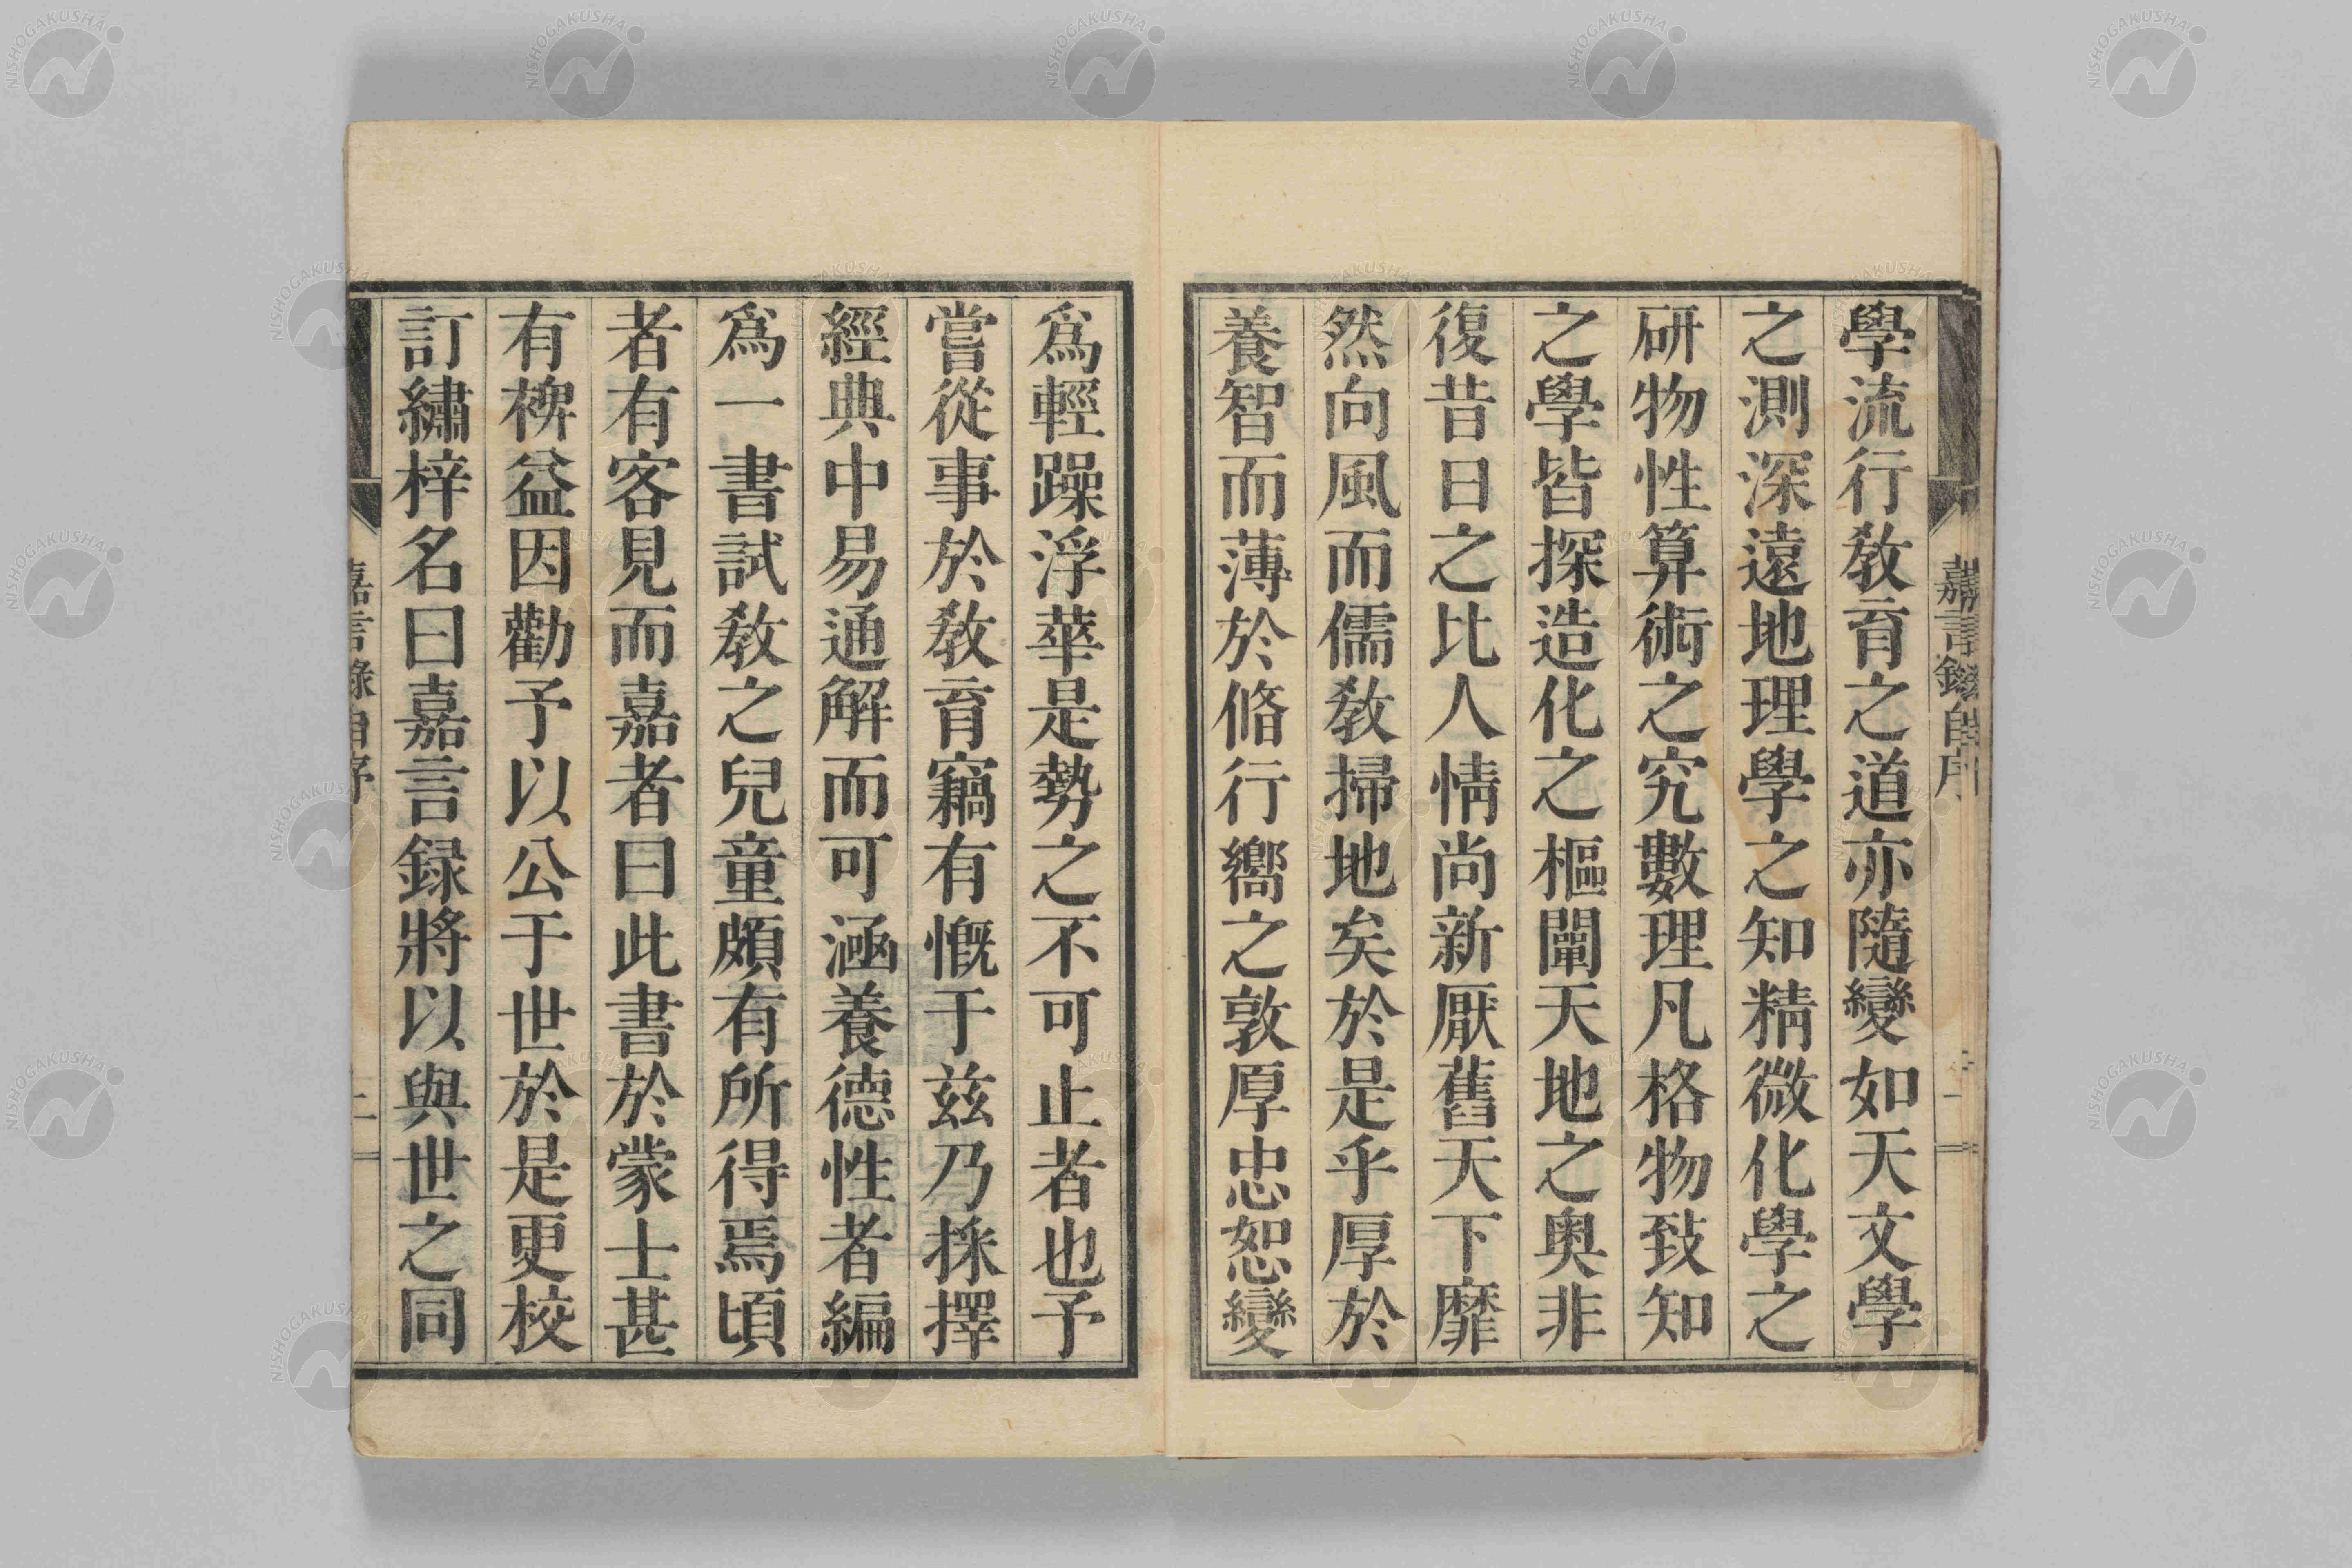 嘉言錄自序
學流行教育之道亦隨變如天文學
之測深遠地理學之知精微化學之
研物性算術之究數理凡格物致知
之學皆探造化之樞闡天地之奧非
復昔日之比人情尚新厭舊天下靡
然向風而儒教掃地矣於是乎厚於
養智而薄於脩行嚮之敦厚忠恕變
爲輕躁浮華是勢之不可止者也予
嘗從事於教育竊有慨于茲乃採擇
經典中易通解而可涵養德性者編
爲一書試教之兒童頗有所得焉頃
者有客見而嘉者曰此書於蒙士甚
有裨益因勸予以公于世於是更校
訂繡梓名曰嘉言録將以與世之同
嘉言錄自序
二
NISHOGAKUSHA